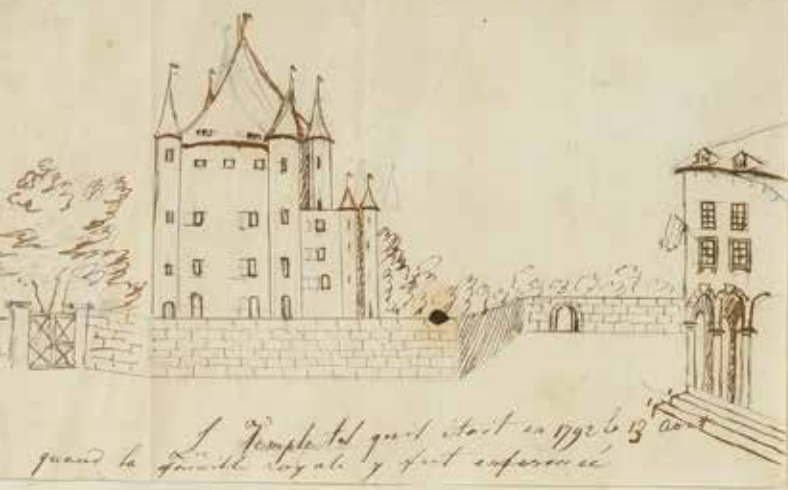 L Temple tel quil etait en 1792 le 13 Aout
quand la famille royale y fut enfermeé